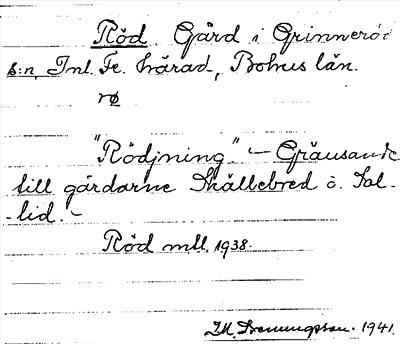 Röd Gård i Grinneröd
s:n, Inl. Fr. härad, Bohus län.
rø
"Rödjning" - Gränsande
till gårdarne Skällebred o. Sal-
-lid. -
Röd mtl. 1938.
1941.